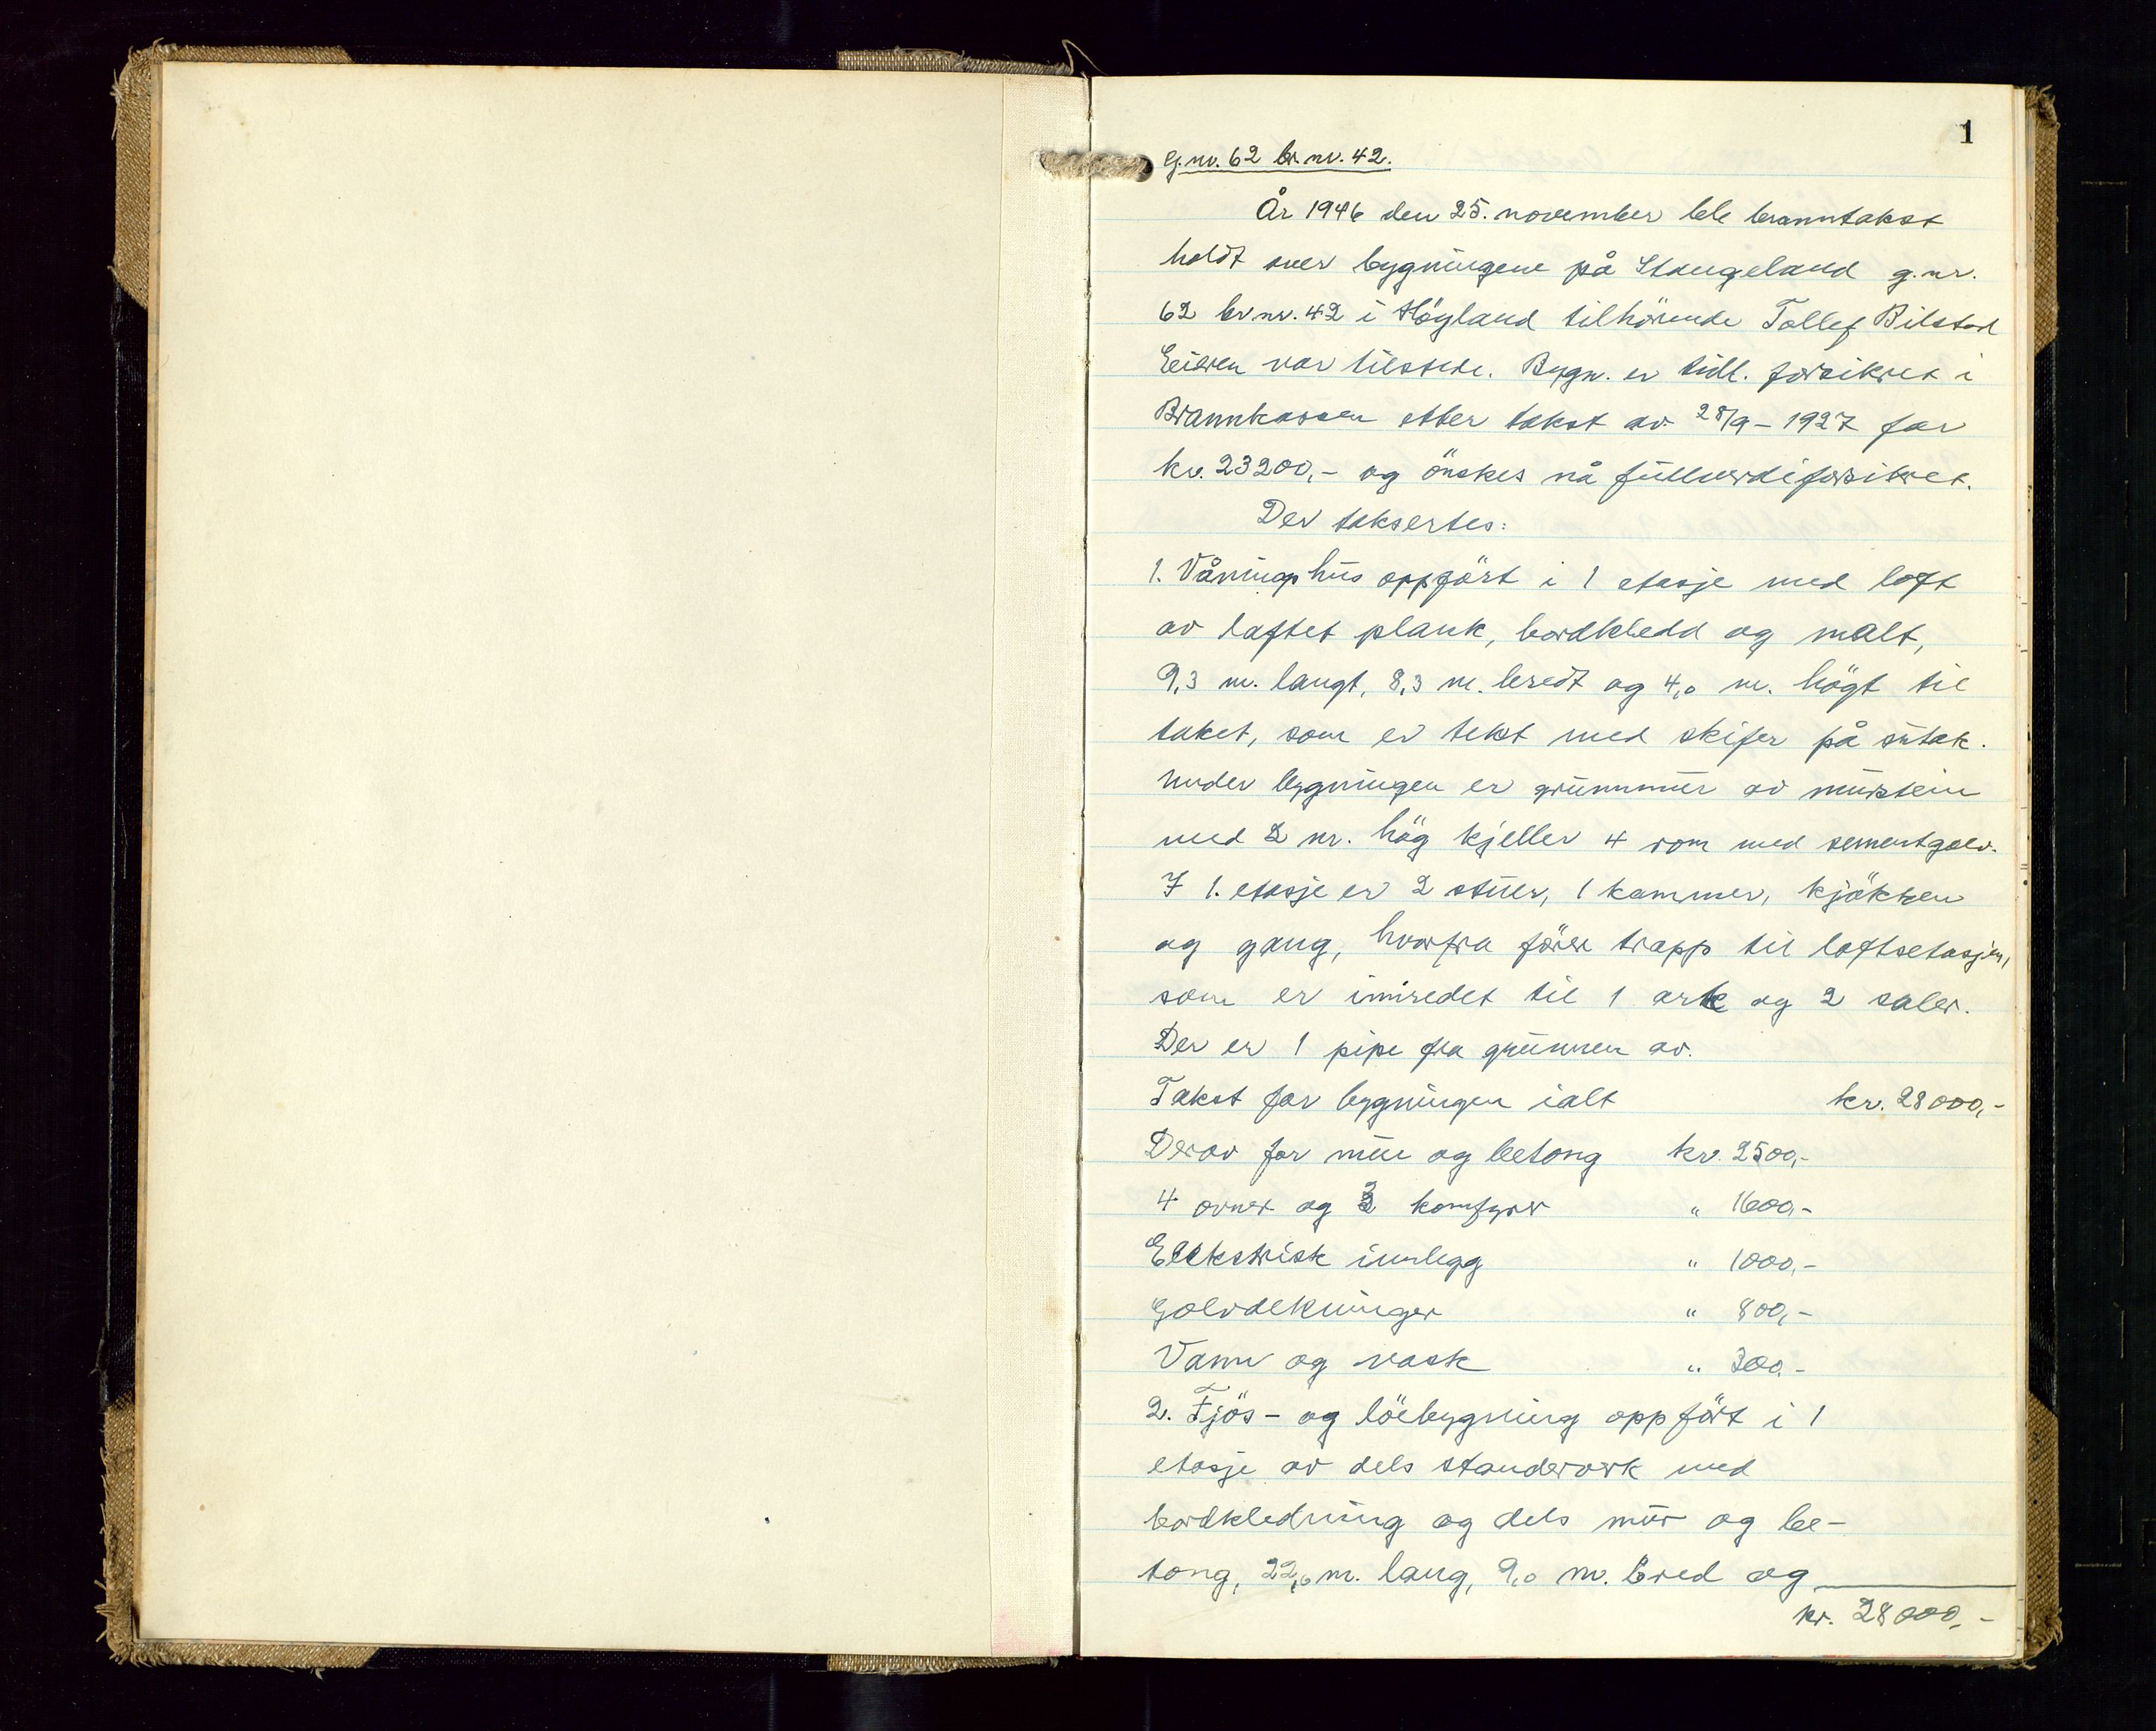 1
G.nr. 62 br.nr. 42.
År 1946 den 25. november ble branntakst
holdt over bygningene på Stangeland g.nr.
62 br.nr. 42 i Höyland tilhörende Tollef Bilstad
Eieren var tilstede. Bygn. er tidl. forsikret i
Brannkassen etter takst av 28/9 - 1927 for
kr. 23200,- og önskes nå fullverdiforsikret.
Der taksertes:
1. Våningshus oppfört i 1 etasje med loft
av laftet plank, bordkledd og malt,
9,3 m. langt, 8,3 m. bredt og 4,0 m. högt til
taket, som er tekt med skifer på sutak.
Under bygningen er grunnmur av murstein
med 2 m. hög kjeller 4 rom med sementgolv.
I 1. etasje er 2 stuer, 1 kammer, kjökken
og gang, hvorfra förer trapp til loftsetasjen,
som er innredet til 1 ark og 2 saler.
Der er 1 pipe fra grunnen av.
Takst for bygningen ialt kr. 28000,-
Derav for mur og betong kr. 2500,-
4 ovner og 2 komfyrer " 1600,-
Elektrisk innlegg " 1000,-
Golvdekninger " 800,-
Vann og vask " 300,-
2. Fjös- og löebygning oppfört i 1
etasje av dels standerverk med
bordkledning og dels mur og be-
tong, 22,6 m. lang, 9,0 m. bred og
kr. 28000,-